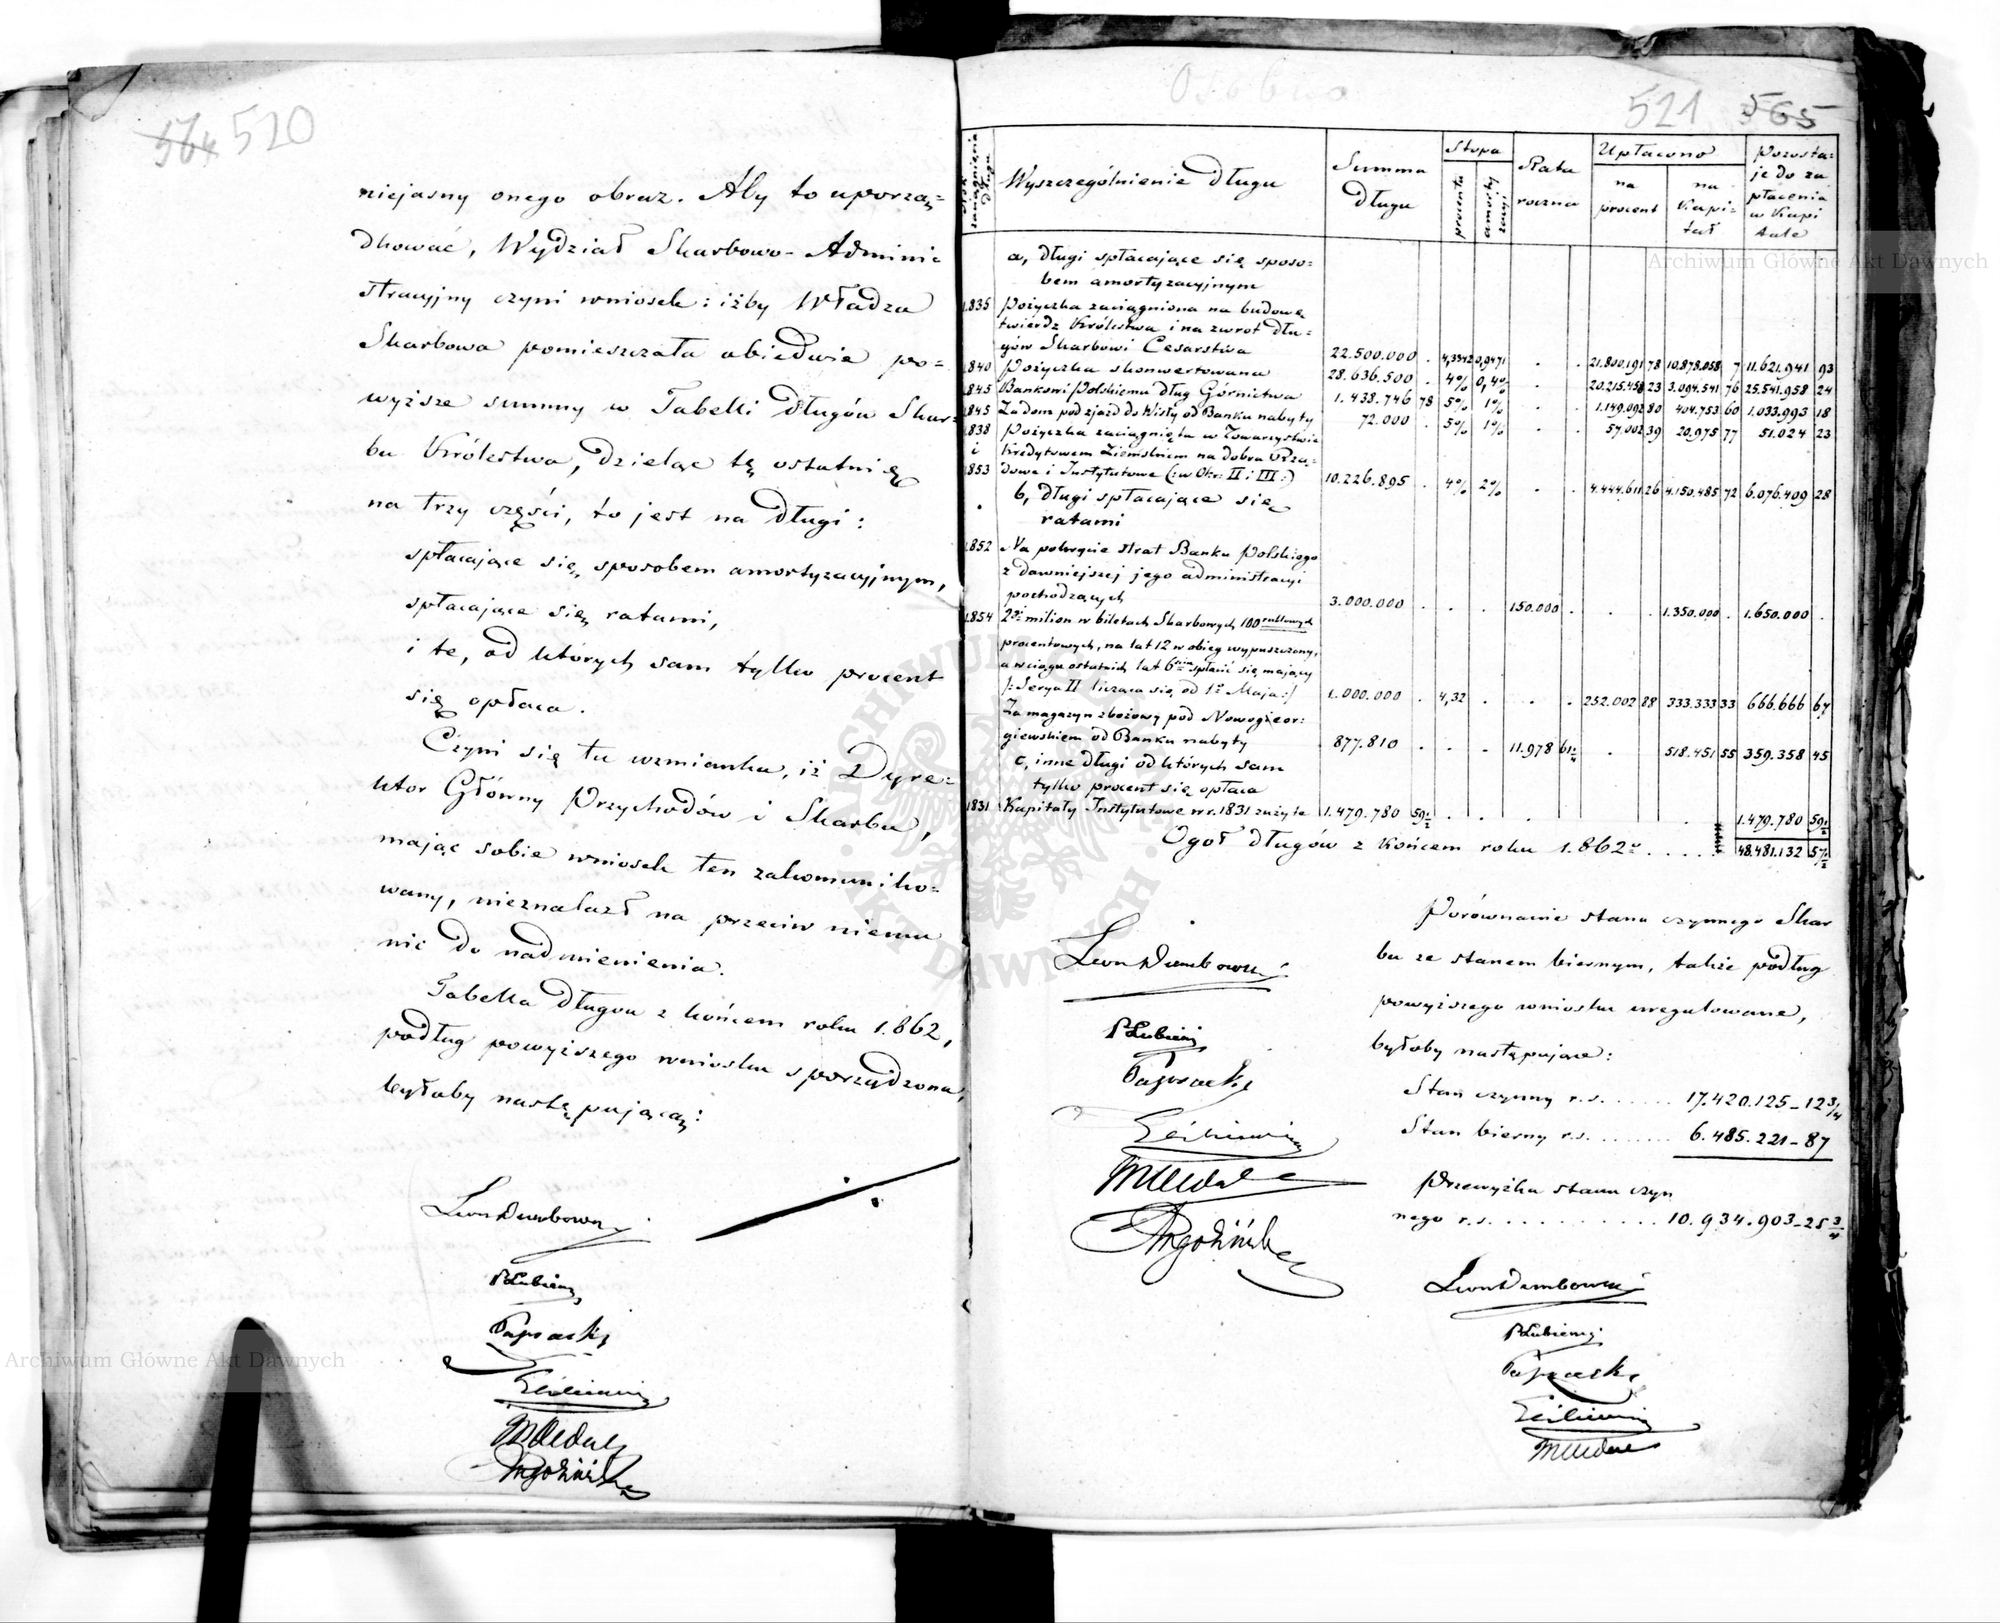 564 520
niejasny onego obraz. Aby to uporzą=
dkować, Wydział Skarbowo-Admini=
stracyjny czyni wniosek: iżby Władza
Skarbowa pomieszczała obiedwie po=
wyższe summy w Tabelli długów Skar=
bu Królestwa, dzieląc tę ostatnię
na trzy części, to jest na długi:
spłacające się sposobem amortyzacyjnym,
spłacające się ratami,
i te, od których sam tylko procent
się opłaca.
Czyni się tu wzmianka, iż Dyre=
ktor Główny Przychodów i Skarbu,
mając sobie wniosek ten zakomuniko=
wany, nieznalazł na przeciw niemu
nic do nadmienienia.
Tabella długów z końcem roku 1.862,
podług powyższego wniosku sporządzona,
byłaby następującą:
Leon Dembowski
P Łubieński
Paprocki
Osobno
521 565
zaciągnienia długu
Wyszczególnienie długu
Summa długu
Stopa
procentu
amortyzacyi
Rata roczna
Upłacono
na procent
na Kapitał
Pozosta=
je do za
płacenia
w Kapi
tale
a, długi spłacające się sposo=
bem amortyzacyjnym
1.835 Pożyczka zaciągniona na budowę
twierdz Królestwa i na zwrot dłu=
gów Skarbowi Cesarstwa 22.500.000 . 4,3342 0,9471 . . 21.800.191 78 10.878.058 7 11.621.941 93
1.840 Pożyczka skonwertowana 28.636.500 . 4% 0,4% . . 20.215.458 23 3.094.541 76 25.541.958 24
1.845 Bankowi Polskiemu dług Górnictwa 1.438.746 78 5% 1% . . 1.149.092 80 404.753 60 1.033.993 18
1.845 Za dom pod zjazd do Wisły od Banku nabyty 72.000 . 5% 1% . . 57.002 39 20.975 77 51.024 23
1.838 Pożyczka zaciągnięta w Towarzystwie
i Kredytowem Ziemskiem na dobra Rzą=
1.853 dowe i Instytutowe (:w Okr: II i III:) 10.226.895 . 4% 2% . . 4.444.611 26 4.150.485 72 6.076.409 28
b, długi spłacające się
ratami
1.852 Na pokrycie strat Banku Polskiego
z dawniejszej jego administracyi
pochodzących 3.000.000 . . . 150.000 . . . 1.350.000 . 1.650.000 .
1.854 2gi milion w biletach Skarbowych 100 rublowych
procentowych, na lat 12 w obieg wypuszczony,
a w ciągu ostatnich lat 6ciu spłacić się mający
/:Serya II licząca się od 1go Maja:/ 1.000.000 . 4,32 . . . 252.002 88 333.333 33 666.666 67
Za magazyn zbożowy pod Nowogieor=
giewskiem od Banku nabyty 877.810 . . . 11.978 61 1/4 . 518.451 55 359.358 45
c, inne długi od których sam
tylko procent się opłaca
1831 Kapitały Instytutowe w r. 1831 zużyte 1.479.780 59 1/2 . . . . 1.479.780 59 1/2
Ogół długów z końcem roku 1.862go . . . . . 48.481.132 57 1/2
Leon Dembowski
P Łubieński
Paprocki
Porównanie stanu czynnego Skar
bu ze stanem biernym, także podług
powyższego wniosku uregulowane,
byłoby następujące:
Stan czynny r.s. . . . . . . 17.420.125-12 3/4
Stan bierny r.s. . . . . . . . 6.485.221-87
Przewyżka stanu czyn
nego r.s. . . . . . . . . . . . 10.934.903-25 3/4
Leon Dembowski
P Łubieński
Paprocki
Archiwum Główne Akt Dawnych
Archiwum Główne Akt Dawnych
ARCHIWUM GŁÓWNE AKT DAWNYCH